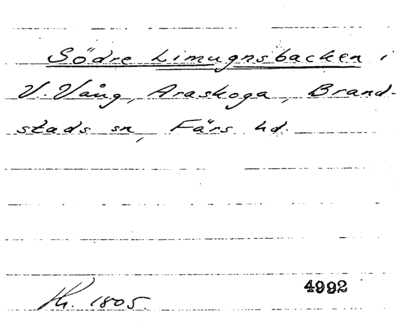 Södre Limugnsbacken i
V. Vång, Araskoga, Brand-
stads sn, Färs hd.
1805.
4992